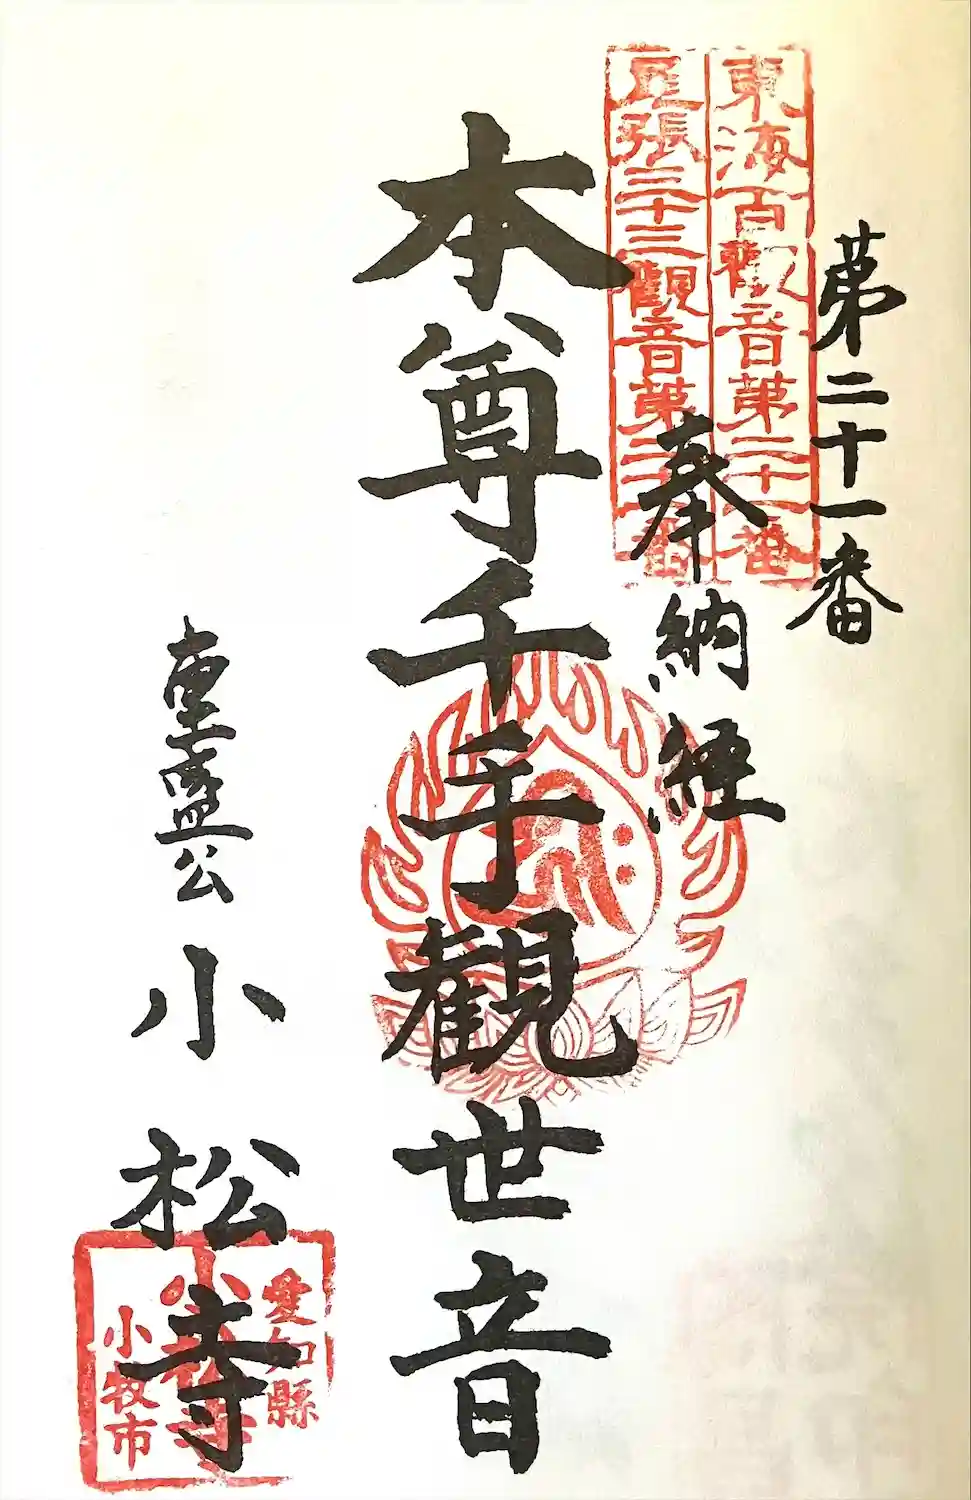 第二十一番
東海百觀音第二十一番
尾張三十三觀音第二十一番
奉納経
本尊千手観世音
重盛公
小松寺
愛知縣
小松寺
小牧市